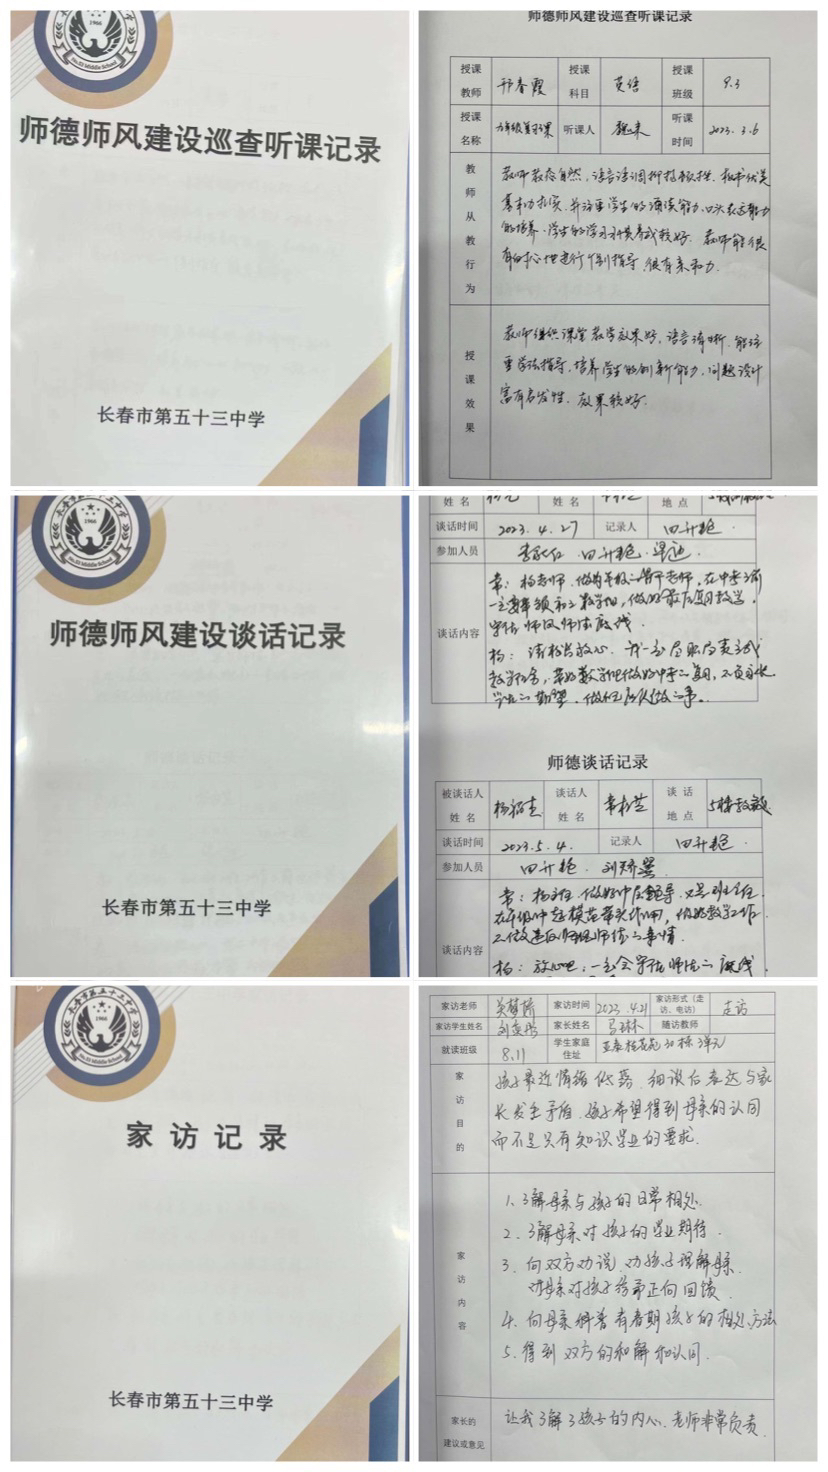 1966
No.53 Middle School
师德师风建设巡查听课记录
长春市第五十三中学
师德师风建设巡查听课记录
授课教师 邢春霞 授课科目 英语 授课班级 9.3
授课名称 九年级复习课 听课人 魏来 听课时间 2023.3.6
教师从教行为
教师教态自然,语言语调抑扬顿挫,板书优美
基本功扎实,并注重学生的诵读能力、口头表达能力
的培养,学生的学习习惯养成较好,教师能很
有耐心地进行个别指导,很有亲和力.
授课效果
教师组织课堂教学效果好,语言清晰,能注
重学法指导,培养学生的创新能力,问题设计
富有启发性,效果较好.
长春市第五十三中学
1966
No.53 Middle School
师德师风建设谈话记录
长春市第五十三中学
姓名 姓名 地点
谈话时间 2023.4.27 记录人 田升艳
参加人员 田升艳
谈话内容
常:杨老师,做为学校骨干老师,在中考之前
一定要带领初三数学组,做好最后复习教学,
守住师风师德底线.
杨:请校长放心,我一定尽职尽责完成
数学任务,带好数学组做好中考复习,不负校长
学校之期望,做任务以做之事。
师德谈话记录
被谈话人姓名 谈话人姓名 谈话地点
谈话时间 2023.5.4. 记录人 田升艳
参加人员 田升艳
谈话内容
常:杨主任,做好中层领导,又是班主任
在年级中起模范带头作用,做好教学工作
不做违反师风师德之事情.
杨:放心吧,一定会守住师德之底线
长春市第五十三中学
1966
No.53 Middle School
家访记录
长春市第五十三中学
家访老师 家访时间 2023.4.21 家访形式(走访、电访) 走访
家访学生姓名 家长姓名 马琳林 随访教师
就读班级 8.11 学生家庭住址 亚泰桂花苑30栋3单元
家访目的
孩子最近情绪低落,细谈后表达与家
长发生矛盾,孩子希望得到母亲的认同
而不是只有知识学业的要求.
家访内容
1.了解母亲与孩子的日常相处.
2.了解母亲对孩子的学业期待.
3.向双方劝说,劝孩子理解母亲,
劝母亲对孩子给予正向回馈.
4.向母亲科普青春期孩子的相处方法
5.得到双方的和解和认同.
家长的建议或意见 让我了解了孩子的内心,老师非常负责.